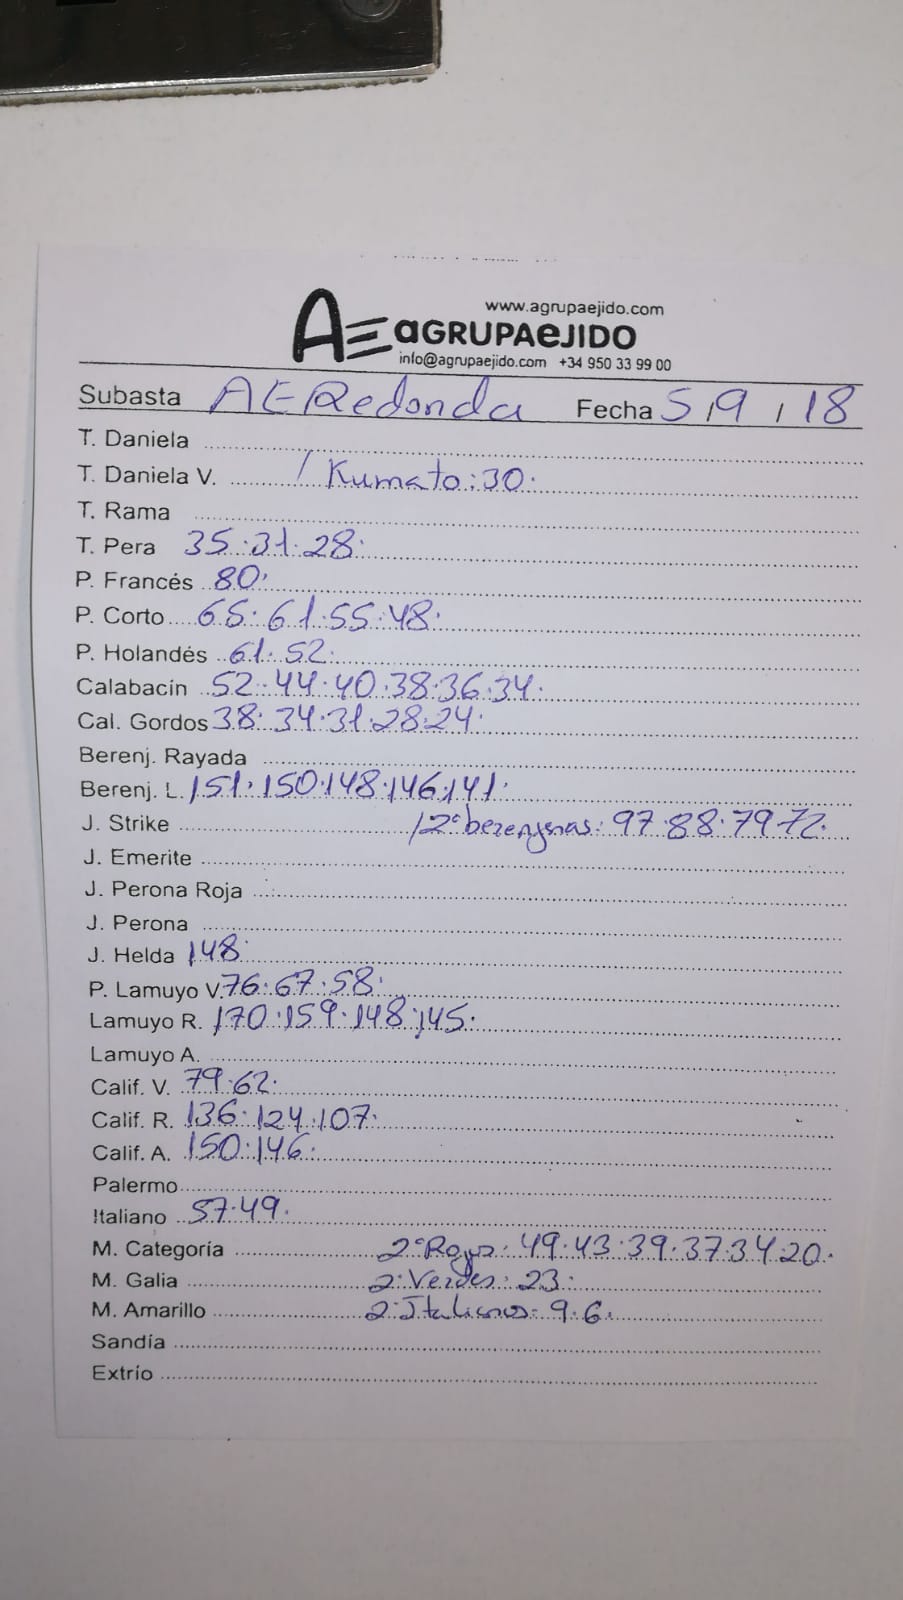 www.agrupaejido.com
AE aGRUPAeJIDO
info@agrupaejido.com +34 950 33 99 00
Subasta AE Redonda Fecha 5/9/18
T. Daniela
T. Daniela V. / Kumato: 30.
T. Rama
T. Pera 35. 31. 28.
P. Francés 80.
P. Corto 65. 61. 55. 48.
P. Holandés 61. 52.
Calabacín 52. 44. 40. 38. 36. 34.
Cal. Gordos 38. 34. 31. 28. 24.
Berenj. Rayada
Berenj. L. 151. 150. 148. 146. 141.
J. Strike / 2ª berenjenas: 97. 88. 79. 72.
J. Emerite
J. Perona Roja
J. Perona
J. Helda 148
P. Lamuyo V. 76. 67. 58.
Lamuyo R. 170. 159. 148. 145.
Lamuyo A.
Calif. V. 79. 62.
Calif. R. 136. 124. 107.
Calif. A. 150. 146.
Palermo
Italiano 57. 49.
M. Categoría 2ª Rojos: 49. 43. 39. 37. 34. 20.
M. Galia 2ª Verdes: 23.
M. Amarillo 2ª Italianos: 9. 6.
Sandía
Extrío